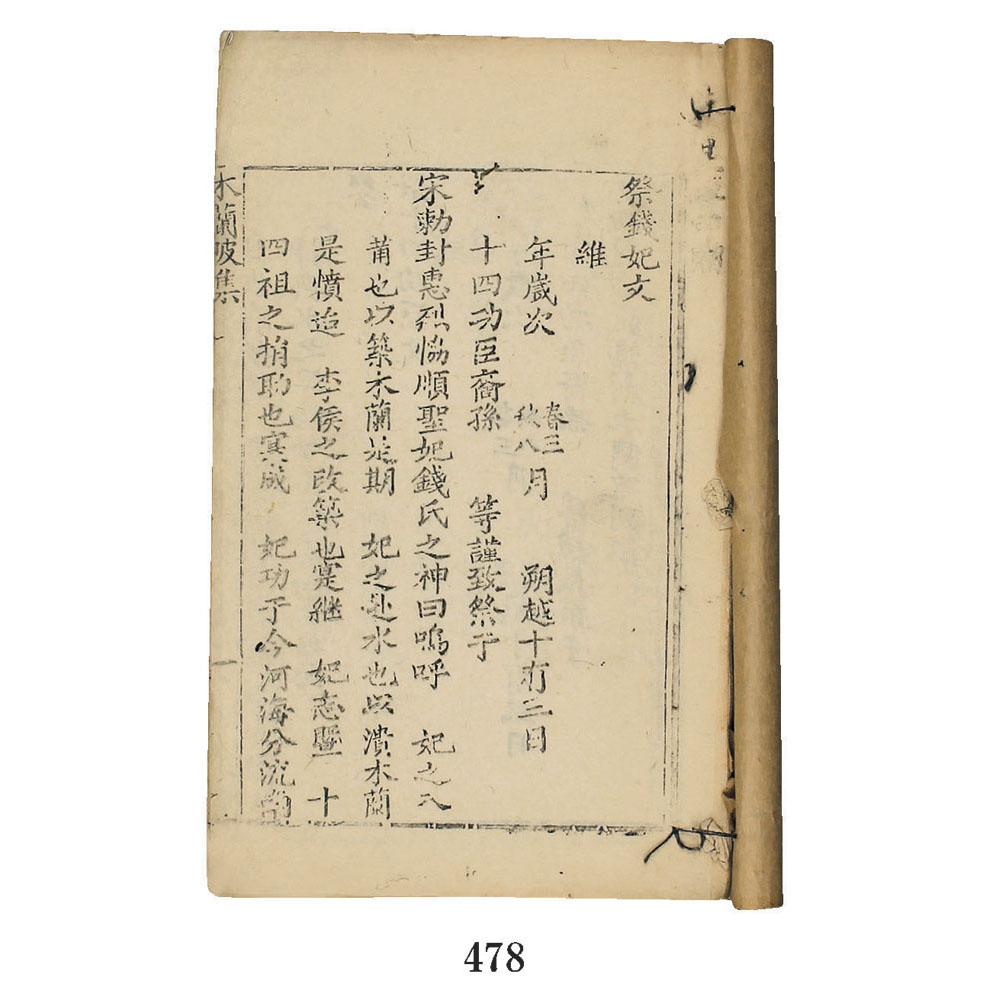 祭錢妃文
維
年歲次 春三秋八月 朔越十有三日
十四功臣裔孫 等謹致祭于
宋勅封惠烈恊順聖妃錢氏之神曰嗚呼 妃之入
莆也以築木蘭是期 妃之赴水也以潰木蘭
是憤迨 李侯之改築也寔継 妃志曁 十
四祖之捐助也寔成 妃功于今河海分流
木蘭陂集
一
478